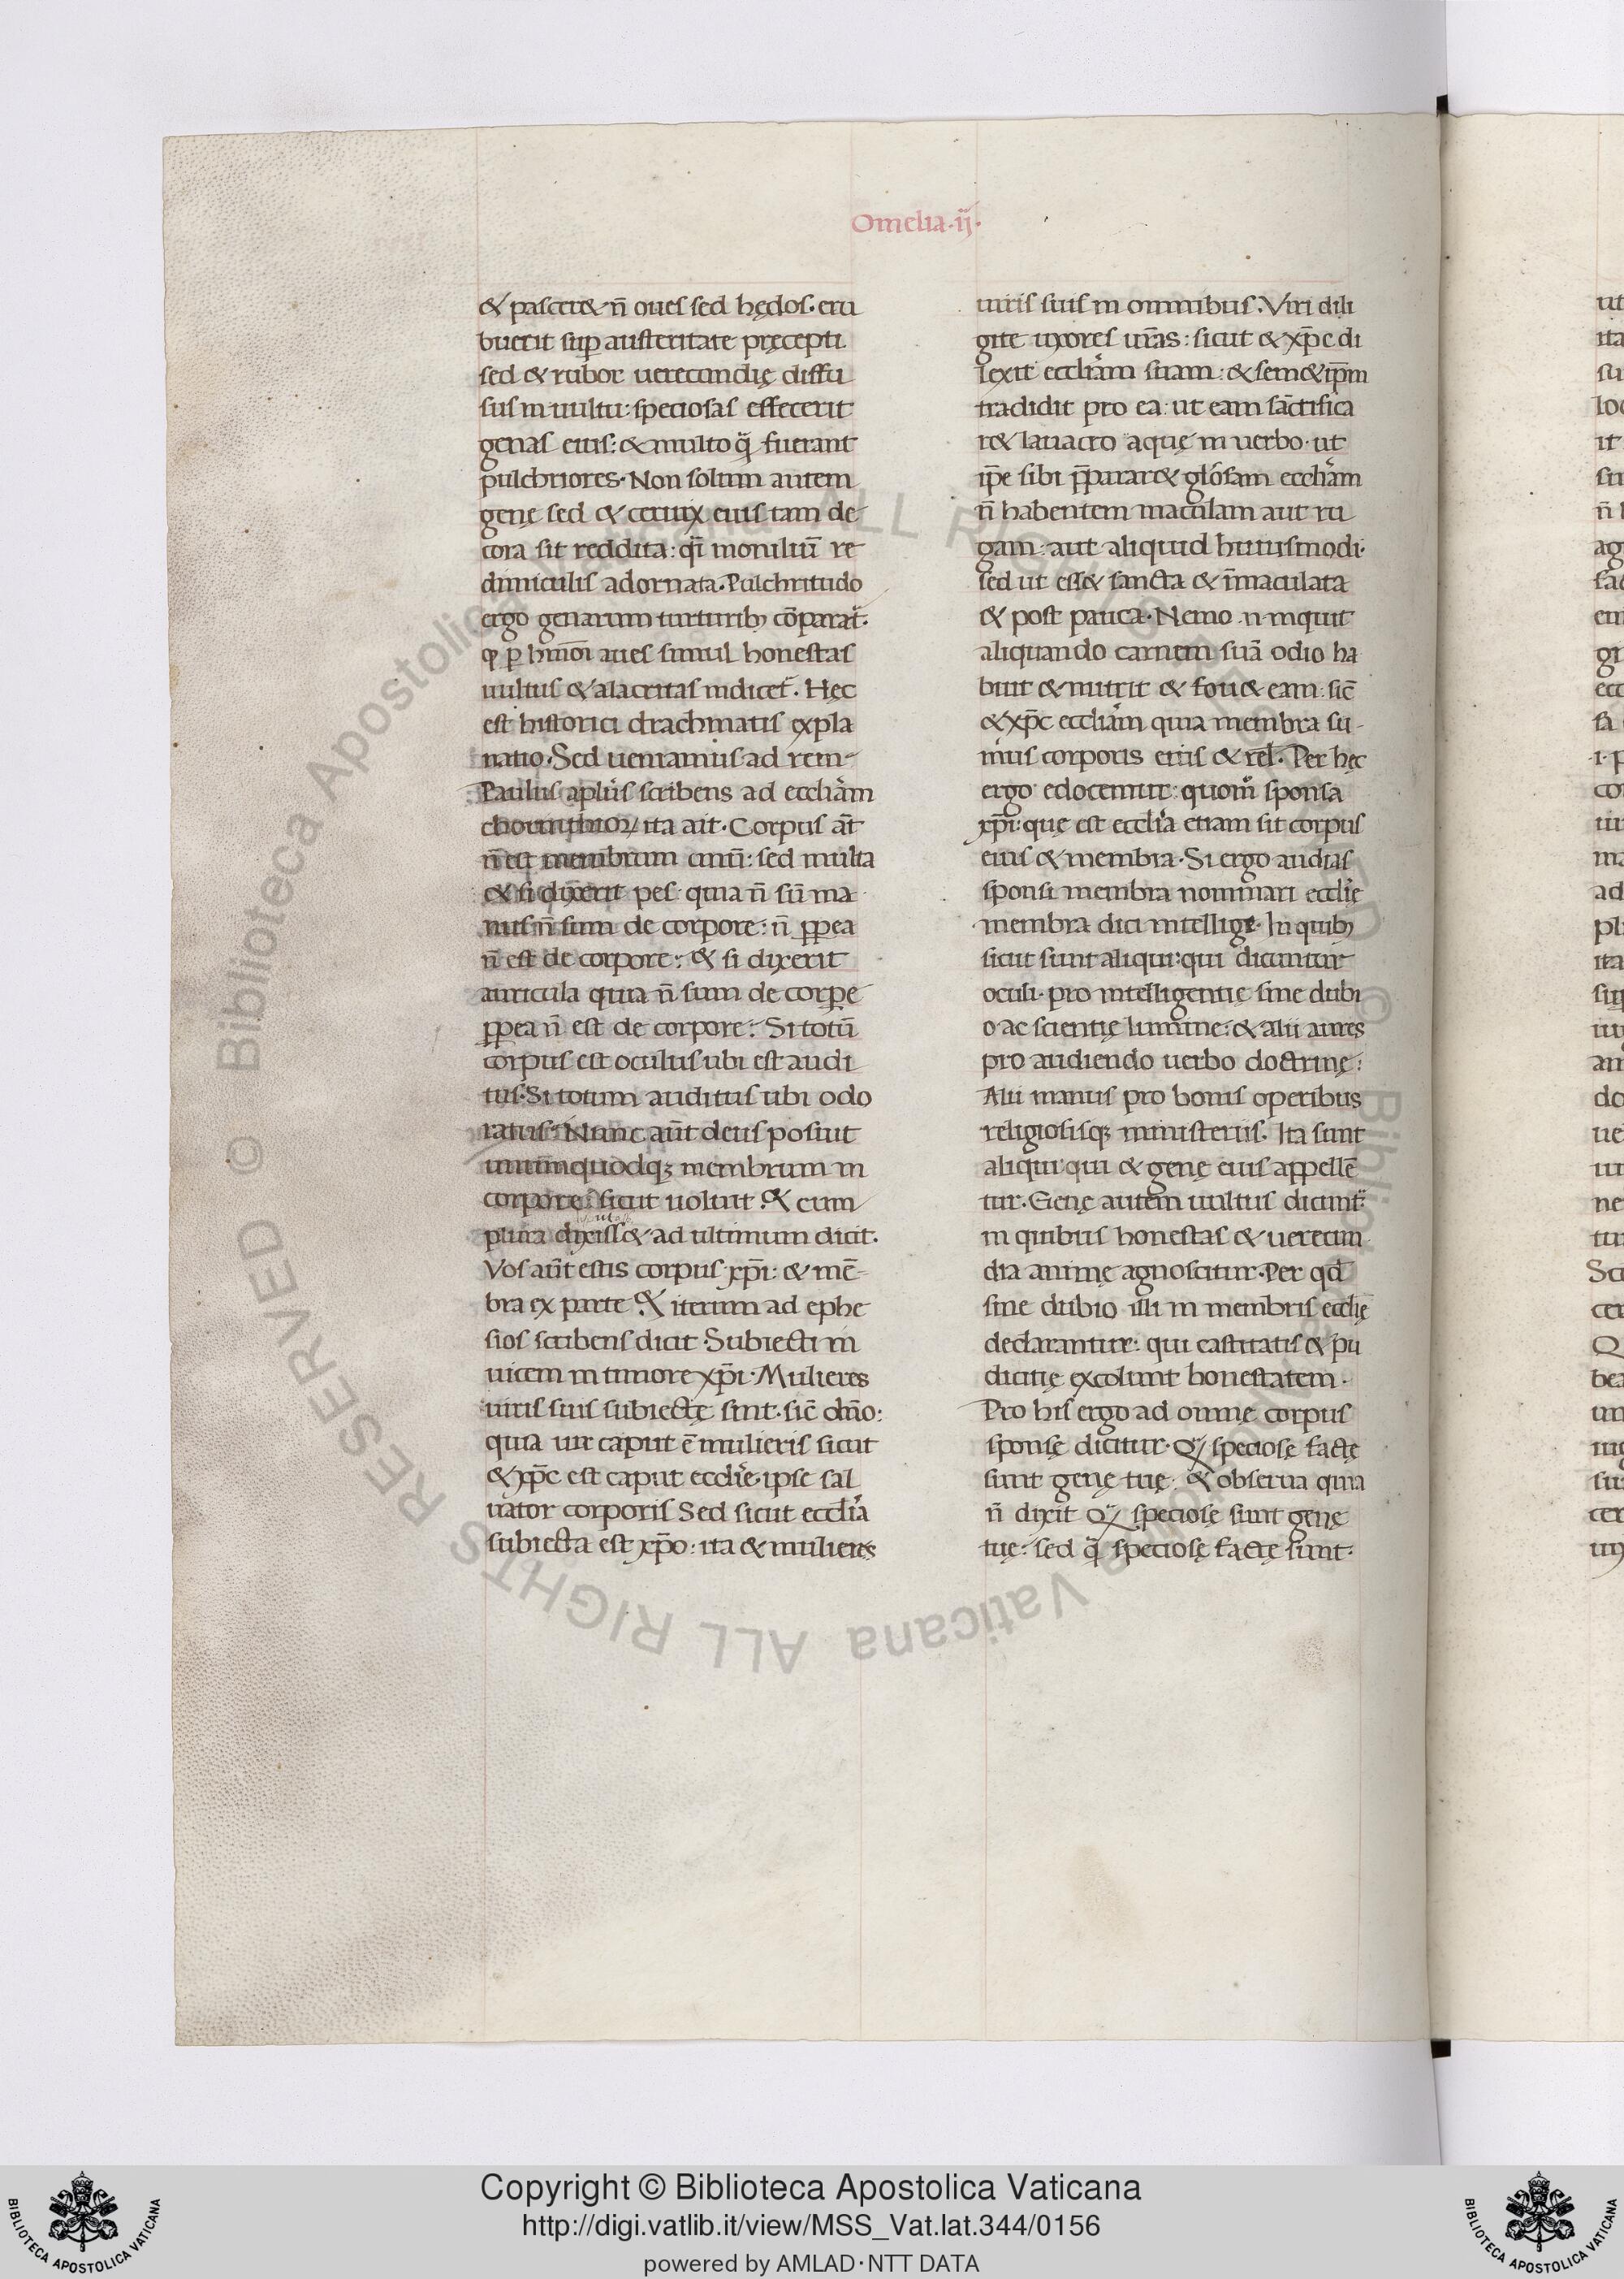 Omelia·ij·
& pascer& n̄ oues sed hędos· eru
buerit sup̱ austeritate pręcepti
sed & rubor uerecundię diffu
sus in uultu: speciosas effecerit
genas eius: & multo q̄ fuerant
pulchriores· Non solum autem
genę sed & ceruix eius tam de
cora sit reddita: q̄i moniliū re
dimiculis adornata· Pulchritudo
ergo genarum turturib; cōparat᷑·
uultus & alacritas indicet᷑· Hęc
est historici drachmatis expla
natio· Sed ueniamus ad rem
Paulus apl̓us scribens ad eccl̓iam
ita ait· Corpus āt
n̄ est membrum unū: sed multa
& si dixerit pes· quia n̄ sū ma
nus n̄ sum de corpore: n̄ ꝓpea
n̄ est de corpore: & si dixerit
auricula quia n̄ sum de corꝑe
ꝓpea n̄ est de corpore: Si totū
corpus est oculus ubi est audi
tus· Si totum auditus ubi odo
ratus· Nunc aūt deus posiuit
unumquodq; membrum in
corpore: sicut uoluit· & cum
plura dixiss& ad ultimum dicit·
Vos aūt estis corpus xp̄i: & mē
bra ex parte· & iterum ad ephe
sios scribens dicit· Subiecti in
uicem in timore xp̄i· Mulieres
uiris suis subiectę sint· sic̄ dn̄o:
quia uir caput ē mulieris sicut
& xp̄c est caput eccl̓ie· ipse sal
uator corporis Sed sicut eccl̓ia
subiecta est xp̄o: ita & mulieres
uiris suis in omnibus· Viri dili
gite uxores ur̄as: sicut & xp̄c di
lexit eccl̓iam suam: & sem&ip̄m
tradidit pro ea: ut eam sāctifica
r& lauacro aquę in uerbo· ut
ip̄e sibi p̄parar& gl̓osam eccl̓iam
n̄ habentem maculam aut ru
gam: aut aliquid huiusmodi·
sed ut ess& sancta & īmaculata
& post pauca· Nemo n· inquit
aliquando carnem suā odio ha
buit & nutrit & fou& eam: sic̄
& xp̄c eccl̓iam quia membra su-
mus corporis eius & rel̄· Per hęc
ergo edocemur: quom̊ sponsa
xp̄i: que est eccl̓ia etiam sit corpus
eius & membra· Si ergo audias
sponsi membra nominari eccl̓ię
membra dici intellige· In quib;
sicut sunt aliqui: qui dicuntur
oculi· pro intelligentię sine dubi
o ac scientię lumine: & alii aures
pro audiendo uerbo doctrinę:
Alii manus pro bonis operibus
religiosisq; ministeriis· Ita sunt
aliqui qui & genę eius appellē
tur· Genę autem uultus dicunt᷑·
in quibus honestas & uerecun
dia animę agnoscitur· Per qd̄
sine dubio illi in membris eccl̓ię
declarantur: qui castitatis & pu
dicitię excolunt honestatem·
Pro his ergo ad omnę corpus
sponsę dicitur· Q̃ speciosę factę
sunt genę tuę· & obserua quia
n̄ dixit Q̃ speciosę sunt genę
tuę: sed q̄ speciosę factę sunt·
Copyright © Biblioteca Apostolica Vaticana
http://digi.vatlib.it/view/MSS_Vat.lat.344/0156
powered by AMLAD·NTT DATA